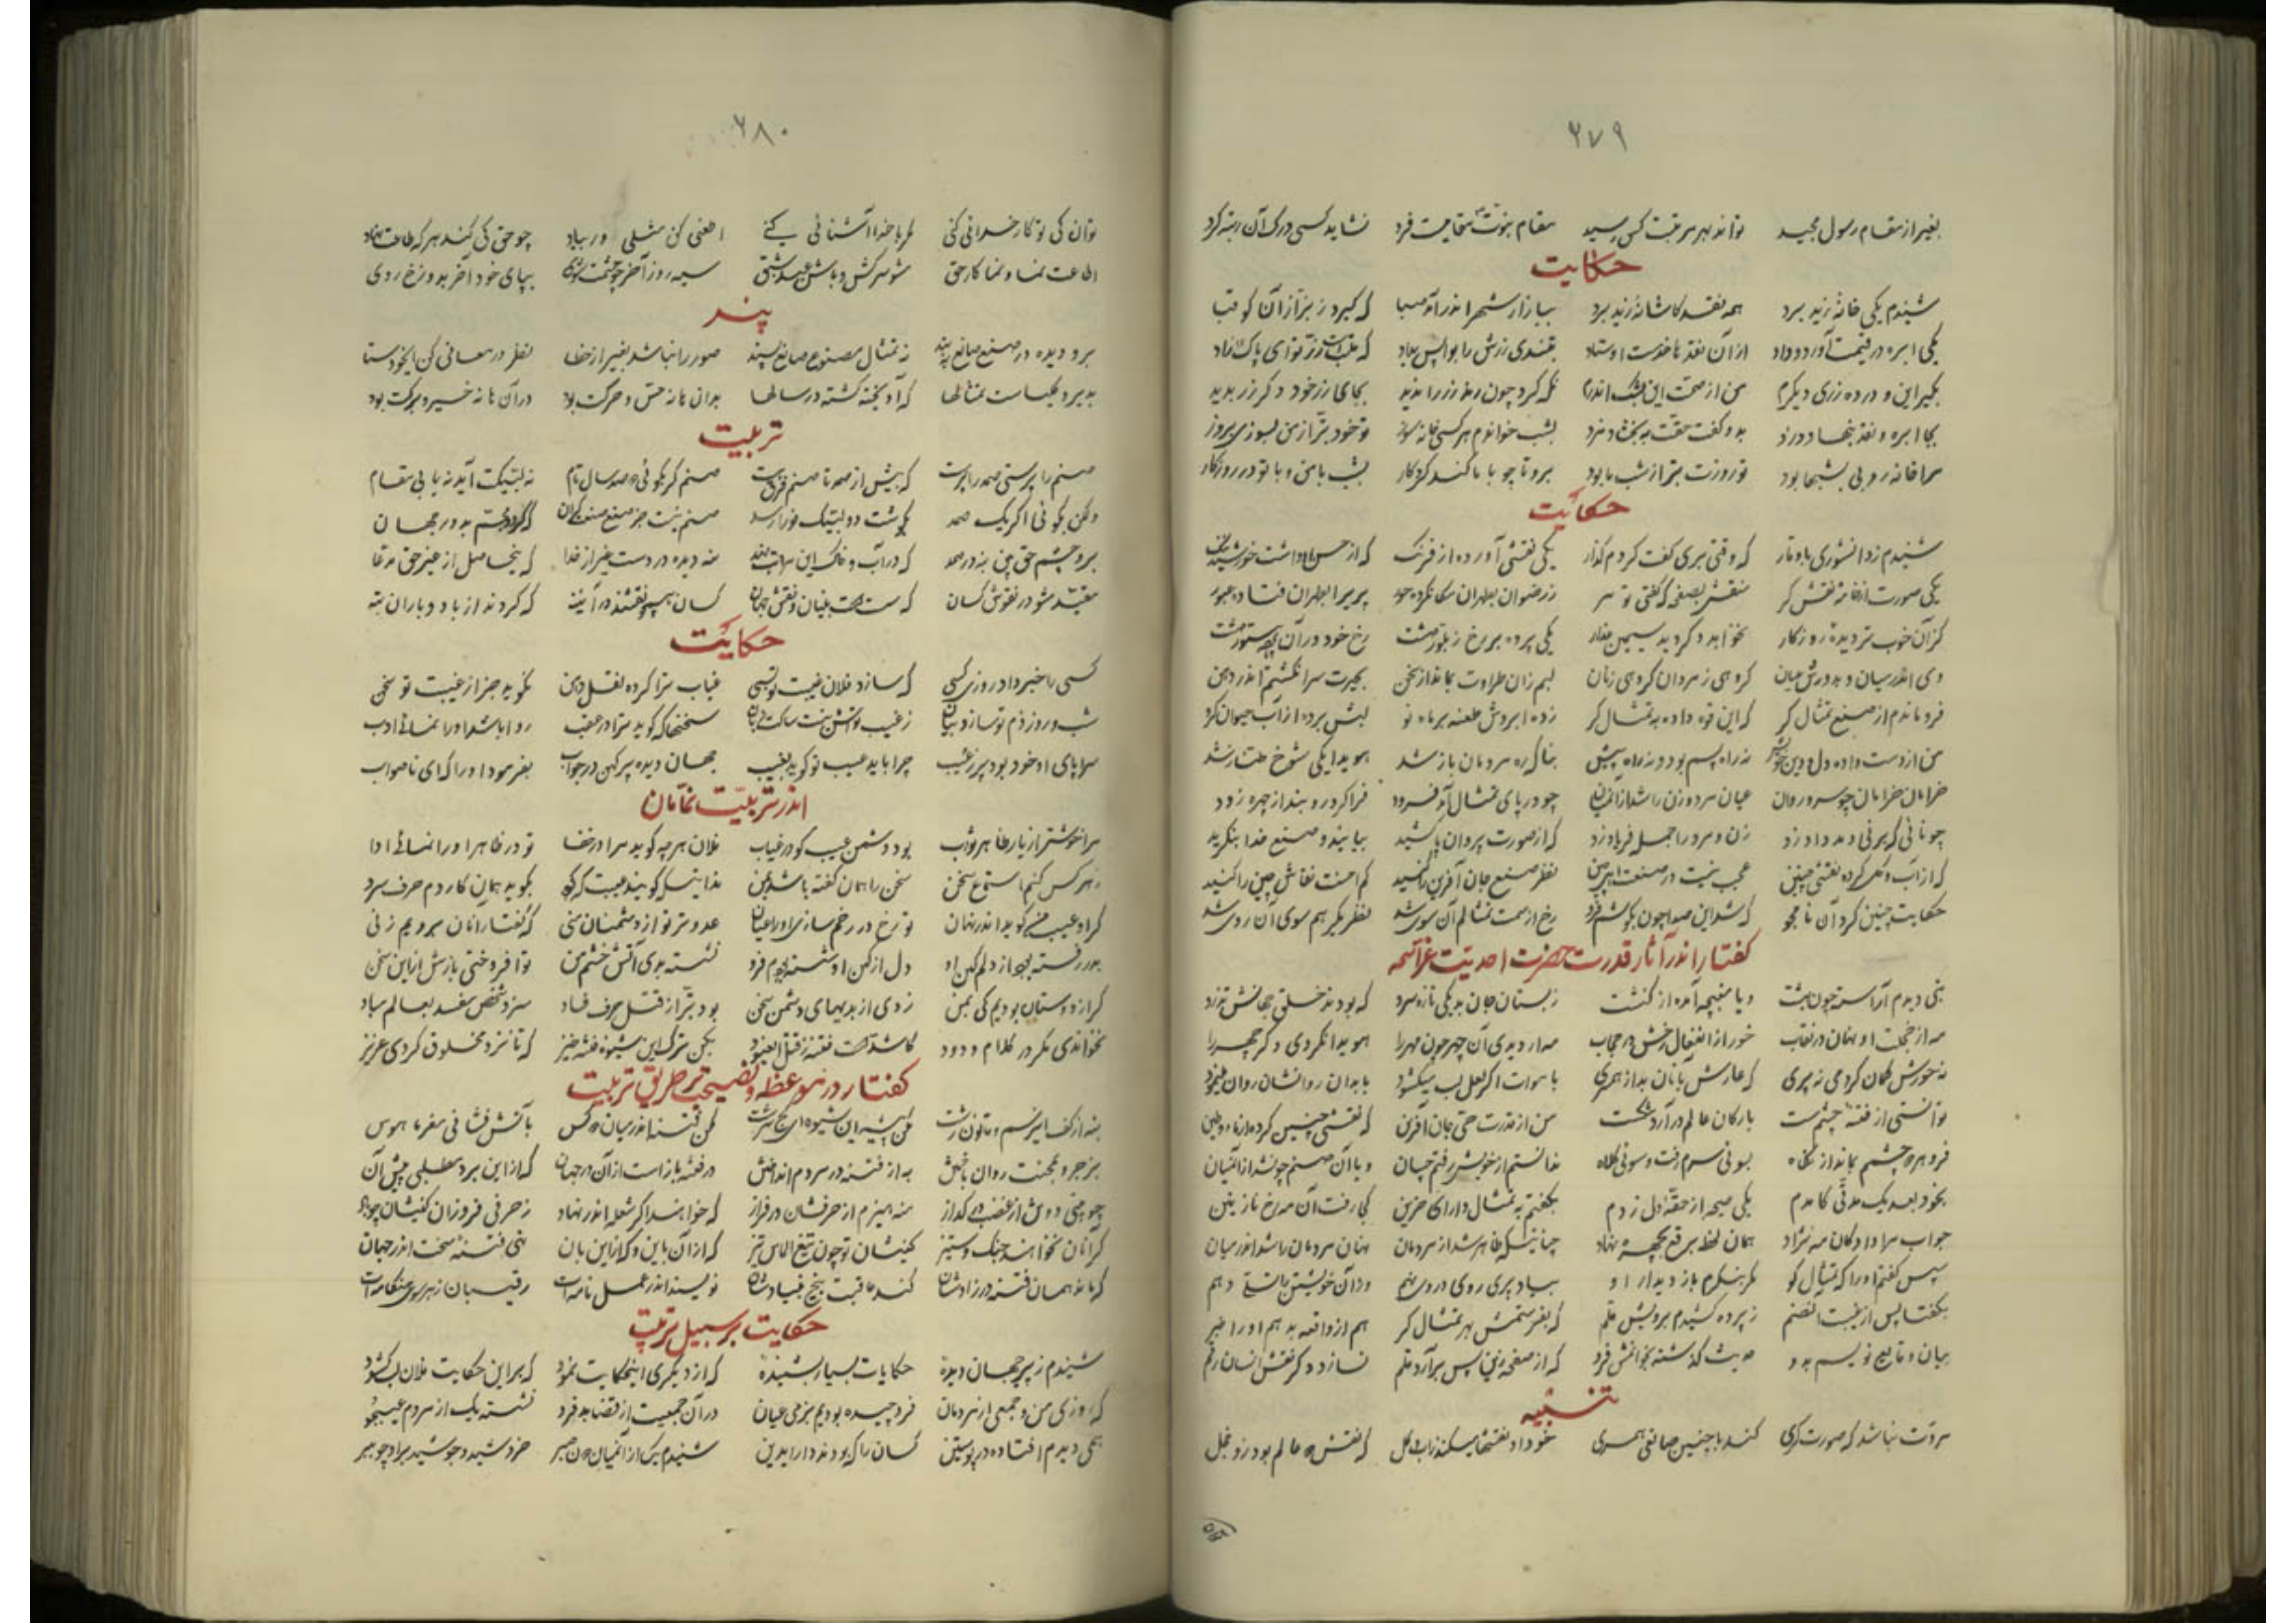 ۲۷۹
بغیر از مقام رسول مجید تواند بهر مرتبت کس رسید مقام نبوت مقامیست فرد نشاید کسی درک آن رتبه کرد
حکایت
شنیدم یکی خانهٔ زید برد همه نقد کاشانهٔ زید برد ببازار شهر اندر آمد که گیرد ز بزاز آن کو قبا
یکی ابره در قیمت آورد و داد از آن نقد تا خدمت اوستاد بتندی زرش را بوا پس بداد که قلب است زر تو ای پاک زاد
بگیر این و در ده زری دیگرم من از صحت این بشک اندرم نگه کرد چون رند زر را ندید بجای زر خود دگر زر بدید
بجا ابره و نقد بنهاد دزد بدو گفت حقت ببخشد مزد بشب خوانم هر کسی خانه سوز تو خود بتر از من بسوزی بروز
مرا خانه روبی بشبها بود تو روزت بتر از شب ما بود برو تا چو با ما کند کردگار بشب با من و با تو در روزگار
حکایت
شنیدم ز دانشوری باوقار که وقتی بری گفت کردم گذار یکی نقشی آورده از فرنگ که از حسن او داشت خورشید ننگ
یکی صورت از خامهٔ نقش گر منقش بصفحه که گفتی تو سر ز رضوان بطهران مکان کرده حور پریرا بطهران فتاده عبور
کز آن خوبتر دیدهٔ روزگار نخوابد و گر دید سیمین عذار یکی پرده بر رخ ز بلور داشت رخ خود در آن پرده مستور داشت
وی اندر میان و بدورش عیان گروهی ز مردان گروهی زنان لبم زان طراوت بماند از سخن بحیرت سرانگشتم اندر دهن
فرو ماندم از صنع تمثال گر که این قوه داده به تمثال گر زده ابروش طعنه بر ماه نو لبش برده از آب حیوان گرو
من از دست داده دل و دین خویش نه راه پسم بود و نه راه پیش بناگه ره مردمان باز شد هویدا یکی شوخ طناز شد
خرامان خرامان چو سرو روان عیان مرد و زن را شد از آنمیان چو در پای تمثال آمد فرود فرا کرد روبند از چهره زود
زن و مرد را جمله فریاد زد که از صورت پردان بیایید و صنع خدا بنگرید
که از آب و گل کرده نقشی چنین عجب نیست در صنعت نظر صنع جان آفرین را کنید کم احسنت نقاش چین را کنید
حکایت چنین کرد آن نامجو که شد این صدا چون بگوشم فرو رخ از سمت تمثالم آن سوی شد نظر یکرهم سوی آن روی شد
گفتار اندر آثار قدرت حضرت احدیت عز اسمه
بتی دیدم آراسته چون بهشت و یا مغبچه آمده از کنشت ز بستان جان بد یکی تازه سرو که بودند خلقی بجانش تذرو
مه از خجلت او نهان در نقاب خور از انفعال رخش در حجاب مه ار دیدی آن چهر چون مهر را هویدا نکردی دگر چهر را
نه حورش گمان کردمی نه پری که عارش بآنان بد از همسری باموات اگر لعل لب میگشود بابدان روانشان روان مینمود
توانستی از فتنهٔ چشم مست بارکان عالم در آرد شکست من از قدرت حق جان آفرین که نقشی چنین کرده از ماء و طین
فرو بهره چشم بماند از نگاه بسوئی سرم رفت و سوئی کلاه ندانستم از خویش رفتم چسان و یا آن صنم چون شد از آنمیان
بخود بعد یک مدتی کآمدم یکی صیحه از حقهٔ دل زدم بگفتم به تمثال دارای حزین کجا رفت آن مه رخ نازنین
جواب مرا داد کان مه نژاد همان لحظه برقع بچهره نهاد چنانیکه ظاهر شد از مردمان نهان مردمان را شد اندر میان
سپس گفتم او را که تمثال کو مگر بنگرم باز دیدار او بیاد پری روی در وی نهم در آن خویشتن را تسلی دهم
بگفتا پس از غیبت آنصنم ز پرده کشیدم برویش قلم که بفرستمش بهر تمثال گر هم از واقعه بدهم او را خبر
بیان وقایع نویسم بدو حدیث گذشته بخوانش فرو که از صفحه زین پس برآرد قلم نسازد دگر نقش انسان رقم
تنبیه
مروت نباشد که صورت گری کند با چنین صانعی همسری خود او نقشها میکند ز آب و گل که نقش دو عالم بود زو خجل
۲۸۰
توان کی تو کار خدائی کنی مگر با خدا آشنائی کنی چو حق کی کند هر که طاعت نهاد
اطاعت نما و نما کار حق مشو سرکش و باش عبد سیه روز آخر چو بپای خود آخر بدوزخ روی
پند
برو دیده در صنع صانع ببند نه تمثال مصنوع صانع پسند صور را نباشد بغیر از خطا نظر در معانی کن ایخودستا
بدیر و کلیساست تمثالها که آویخته گشته در سالها بدان ها نه حس و حرکت بود در آن ها نه خیر و برکت بود
تربیت
صنم را پرستی صمد را پرست که بیش از صمد تا صنم فرق هست صنم گر بگوئی دو صد سال تام نه لبیکت آید نه یابی مقام
ولکن بگوئی اگر یک صمد بگوشت دو لبیک فورا رسد صنم نیست جز صنع بدور جهان
برو چشم حق بین بنه در صمد که در آب و خاک این منه دیده در دست غیر از خدا که بیحاصل از غیر حق مدعا
مقید مشو در نقوش کسان که سست است بنیان و نقش جهان کسان همچو نقشند در آینه که کردند از باد و باران بنه
حکایت
کسی را خبر داد روزی کسی که سازد فلان غیبت تو بسی غیاب ترا کرده نقل دهن نگوید جز از غیبت تو سخن
شب و روز ذم تو سازد بیان ز غیب تواش نیست ساکت زبان سخنها که گوید ترا در عقب روا باشد او را نمائی ادب
سراپای او خود بود پر ز عیب چرا باید عیب تو گوید بغیب جهان دیده پیر کهن در جواب بفرمود او را که ای ناصواب
اندر تربیت نمامان
مرا خوشتر از یار ظاهر بود دشمن عیب گو در غیاب فلان هر چه گوید مرا در خفا تو در ظاهر او را نمائی ادا
ز هر کس کنم استماع سخن سخن را همان گفته باشد بمن ندانیکه گویند غیبت که گو بگوید همان کار دم حرف سرد
گر او عیب من گوید اندر نهان تو رخ در رخم سازی او را عیان عدوتر تو از دشمنان منی که گفتار آنان برویم زنی
بدر رفته بود از دلم کین او دل از کین او شسته بودم فرو نشسته بدی آتش خشم من تو افروختی بازش از این سخن
گر از دوستان بودیم کی بمن زدی از بدیهای دشمن سخن بود بتر از قتل حرف فساد سزد شخص مفسد بعالم مباد
نخواندی مگر در کلام ودود که شد فتنه ز قتل بکن ترک این شیوهٔ فتنه خیز که تا نزد مخلوق گردی عزیز
گفتار در موعظه و نصیحت بر طریق تربیت
بنه از کف این رسم و قانون زشت مکن پیشه این شیوه ای کج سرشت مکن فتنه اندر میان دو کس بآتش فشانی مفرما هوس
بزجر و محنت روان باختن به از فتنه در مردم انداختن در فتنه باز است از آن در جهان که از این برد مطلبی پیش آن
چو بینی دو تن از غضب در گداز منه هیزم از حرفشان در فراز که خواهند اگر شعله اندر نهاد ز حرفی فروزان کنیشان چو باد
گر آنان نخواهند جنگ و ستیز کنیشان تو چون تیغ الماس تیز که از آن باین و گه از این بآن نهی فتنهٔ سخت اندر جهان
که ماند همان فتنه در زادشان کند عاقبت بیخ بنیادشان نویسند اندر عمل نامه‌ات رقیبان ز هر سوی هنگامه‌ات
حکایت بر سبیل تربیت
شنیدم ز پیر جهان دیدهٔ حکایات بسیار بشنیدهٔ که از دیگری این حکایت نمود که بر این حکایت فلان لب گشود
که روزی من و جمعی از مردمان فرو چیده بودیم بزمی عیان در آن جمعیت از قضا بد فرد نشسته یک از مردم عیبجو
همی دیدم افتاده در پوستین کسان را که بودند دارای دین شنیدم یکی از آنمیان خروشید و جوشید بر او چو ببر